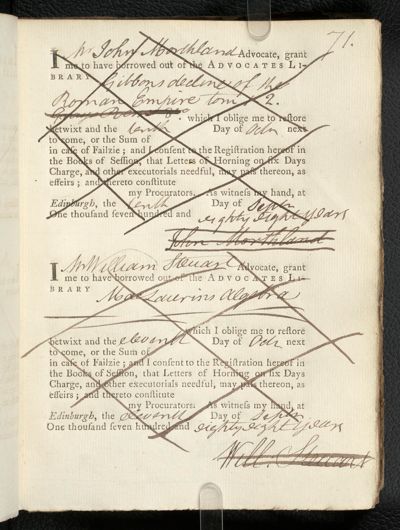 71.
I Mr John Morthland Advocate, grant
me to have borrowed out of the ADVOCATES LI-
BRARY Gibbons decline of the
Roman Empire tom 2.
8o. which I oblige me to reſtore
betwixt and the tenth Day of Octr next
to come, or the Sum of
in caſe of Failzie; and I conſent to the Regiſtration hereof in
the Books of Seſſion, that Letters of Horning on ſix Days
Charge, and other executorials needful, may paſs thereon, as
effeirs; and thereto conſtitute
my Procurators. As witneſs my hand, at
Edinburgh, the tenth Day of Septr
One thouſand ſeven hundred and eighty eight years
John Morthland
I Mr William Steuart Advocate, grant
me to have borrowed out of the ADVOCATES LI-
BRARY MacLaurins Algebra
which I oblige me to reſtore
betwixt and the eleventh Day of Octr next
to come, or the Sum of
in caſe of Failzie; and I conſent to the Regiſtration hereof in
the Books of Seſſion, that Letters of Horning on ſix Days
Charge, and other executorials needful, may paſs thereon, as
effeirs; and thereto conſtitute
my Procurators. As witneſs my hand, at
Edinburgh, the Eleventh Day of Septr
One thouſand ſeven hundred and eighty eight years
Will. Steuart